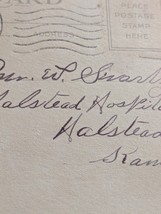 CARD
ADDRESS
PLACE
POSTAGE
STAMP
HERE
W. Swart
Halstead Hospit
Halstead
Kan